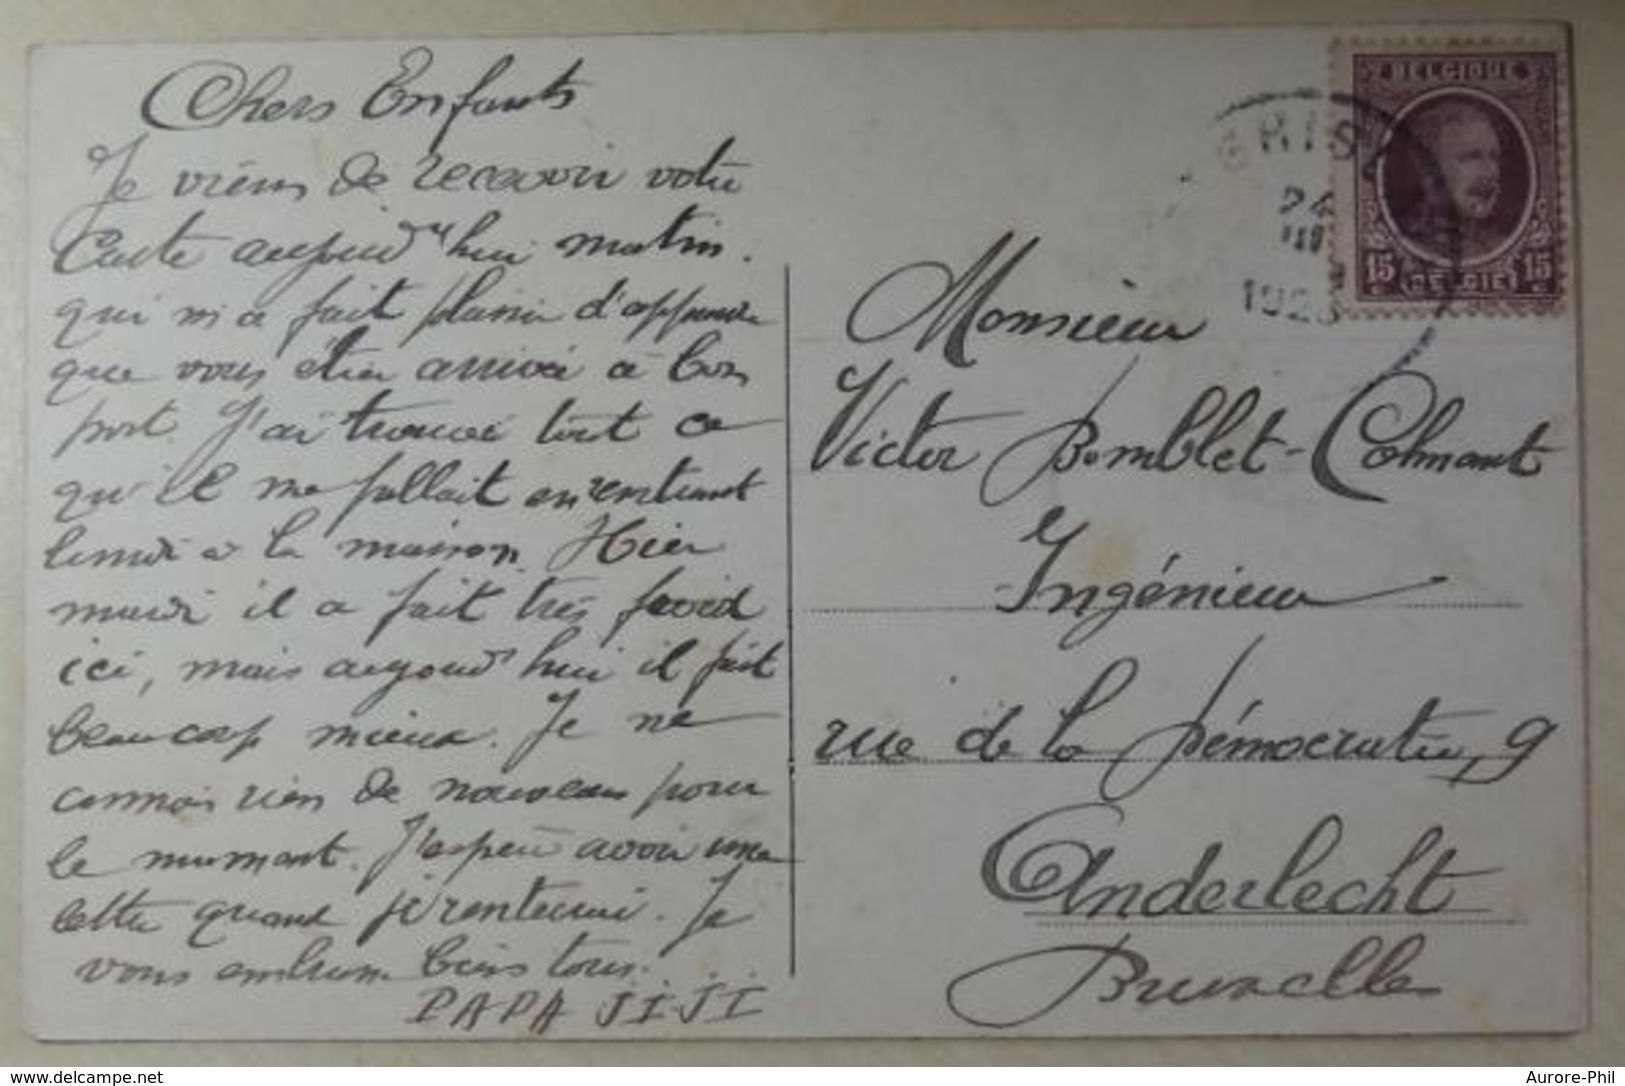 Chers Enfants
Je viens de recevoir votre
Carte aujourd'hui matin.
qui m'a fait plaisir d'apprendre
que vous étier arrivée à bon
port. J'ai trouvé tout ce
qu'il me fallait en rentrant
lundi à la maison. Hier
mardi il a fait très froid
ici, mais aujourd'hui il fait
beaucoup mieux. Je ne
connais rien de nouveau pour
le mumant. J'espère avoir une
lettre quand je rentrerai. Je
vous embrasse biens tous.
PAPA JI-JI
BELGIQUE
15 c BELGIE 15 c
24
III
Monsieur
Victor Bomblet-Colmant
Ingénieur
rue de la Démocratie, 9
Anderlecht
Bruxelles
www.delcampe.net
Aurore-Phil